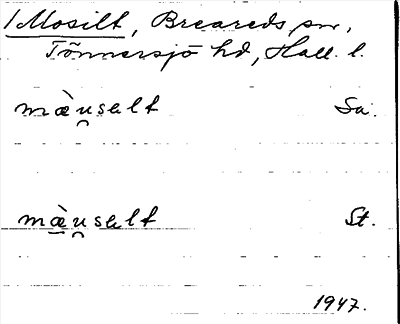 1 Mosilt, Breareds sn,
Tönnersjö hd, Hall. l.
mæ̀u̯sɩlt Sa.
mæ̀u̯sɩlt St.
1947.